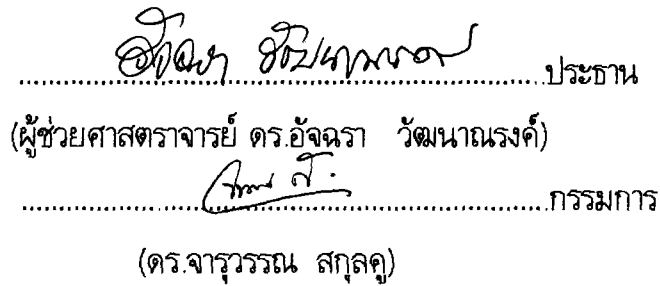 อัจฉรา วัฒนาณรงค์ ประธาน
(ผู้ช่วยศาสตราจารย์ ดร.อัจฉรา วัฒนาณรงค์)
กรรมการ
(ดร.จารุวรรณ สกุลคู)